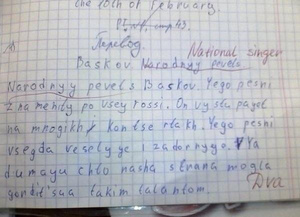 the 10th of February
стр 43.
Перевод.
National singer
Baskov Narodnyy pevets.
Narodnyy pevets Baskov. Yego pesni
znamenity po vsey rossi. On vystupayet
na mnogikh kontsertakh. Yego pesni
vsegda veselyye i zadornyye. Ya
dumayu chto nasha strana mogla
gordit'sya takim talantom.
Два